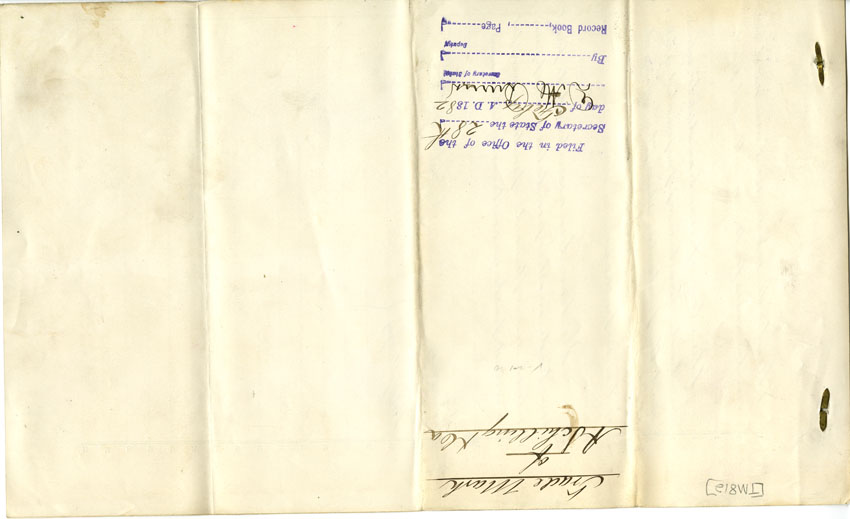 Trade Mark
of
A Schilling & Co
Filed in the Office of the
Secretary of State the 28th
day of Feby A. D. 1882
Secretary of State
By
Deputy
Record Book, , Page
[TM812]